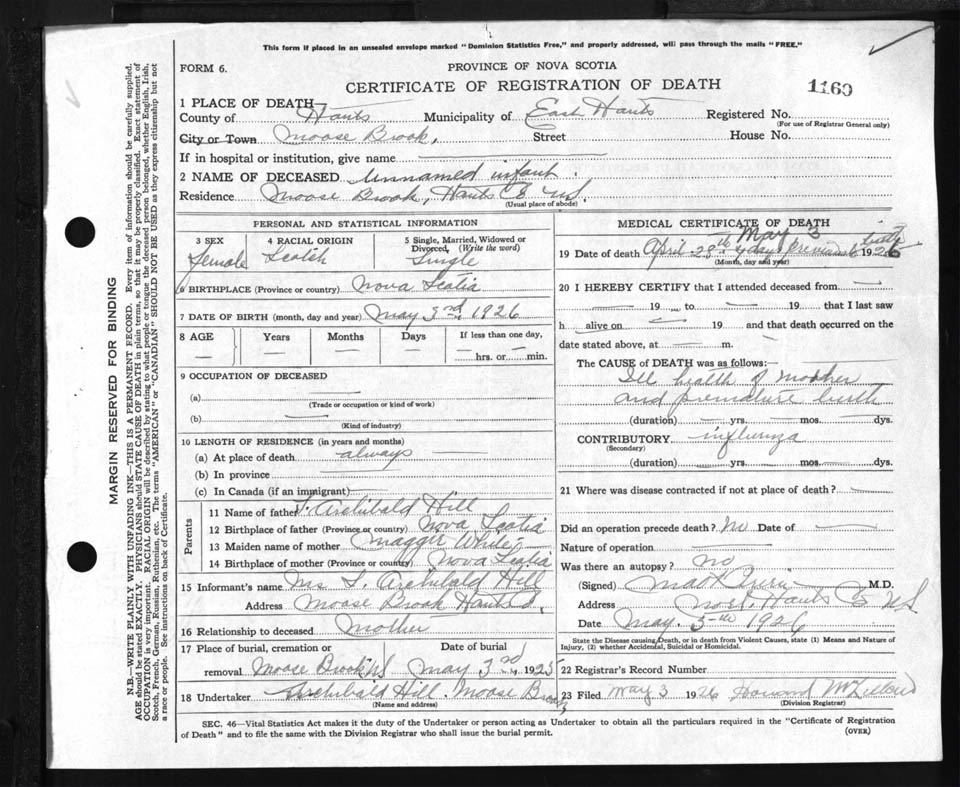 This form if placed in an unsealed envelope marked "Dominion Statistics Free," and properly addressed, will pass through the mails "FREE."
FORM 6.
PROVINCE OF NOVA SCOTIA
CERTIFICATE OF REGISTRATION OF DEATH
1160
1 PLACE OF DEATH—
County of Hants Municipality of East Hants Registered No.
(For use of Registrar General only)
City or Town Moose Brook, Street House No.
If in hospital or institution, give name
2 NAME OF DECEASED Unnamed infant.
Residence Moose Brook, Hants Co NS.
(Usual place of abode)
PERSONAL AND STATISTICAL INFORMATION
3 SEX 4 RACIAL ORIGIN 5 Single, Married, Widowed or Divorced. (Write the word)
Female Scotch Single
6 BIRTHPLACE (Province or country) Nova Scotia
7 DATE OF BIRTH (month, day and year) May 3rd 1926
8 AGE Years Months Days If less than one day,
— — — — hrs. or min.
9 OCCUPATION OF DECEASED
(a)
(Trade or occupation or kind of work)
(b)
(Kind of industry)
10 LENGTH OF RESIDENCE (in years and months)
(a) At place of death always
(b) In province
(c) In Canada (if an immigrant)
Parents
11 Name of father Archibald Hill
12 Birthplace of father (Province or country) Nova Scotia
13 Maiden name of mother Maggie White
14 Birthplace of mother (Province or country) Nova Scotia
15 Informant's name Mrs Archibald Hill
Address Moose Brook Hants
16 Relationship to deceased Mother
17 Place of burial, cremation or removal Moose Brook NS Date of burial May 3rd 1925
18 Undertaker Archibald Hill. Moose Brook
(Name and address)
MEDICAL CERTIFICATE OF DEATH
May 3
19 Date of death April 28th days previous to birth 1926
(Month, day and year)
20 I HEREBY CERTIFY that I attended deceased from
19 to 19 that I last saw
h alive on 19 and that death occurred on the
date stated above, at m.
The CAUSE OF DEATH was as follows:—
Ill health of mother
and premature birth
(duration) yrs. mos. dys.
CONTRIBUTORY influenza
(Secondary)
(duration) yrs. mos. dys.
21 Where was disease contracted if not at place of death?
Did an operation precede death? No Date of
Nature of operation
Was there an autopsy? no
(Signed) M.D.
Address Noel, Hants Co NS
Date May. 5th 1926
State the Disease causing Death, or in death from Violent Causes, state (1) Means and Nature of Injury, (2) whether Accidental, Suicidal or Homicidal.
22 Registrar's Record Number
23 Filed May 3 1926 Howard
(Division Registrar)
SEC. 46—Vital Statistics Act makes it the duty of the Undertaker or person acting as Undertaker to obtain all the particulars required in the "Certificate of Registration
of Death" and to file the same with the Division Registrar who shall issue the burial permit.
(OVER)
MARGIN RESERVED FOR BINDING
N.B.—WRITE PLAINLY WITH UNFADING INK—THIS IS A PERMANENT RECORD. Every item of information should be carefully supplied.
AGE should be stated EXACTLY. PHYSICIANS should STATE CAUSE OF DEATH in plain terms, so that it may be properly classified. Exact statement of
OCCUPATION is very important. RACIAL ORIGIN will be described by stating to what people or tongue the deceased person belonged, whether English, Irish,
Scotch, French, German, Russian, Ruthenian, etc. The terms "AMERICAN" or "CANADIAN" SHOULD NOT BE USED as they express citizenship but not
a race or people. See instructions on back of Certificate.